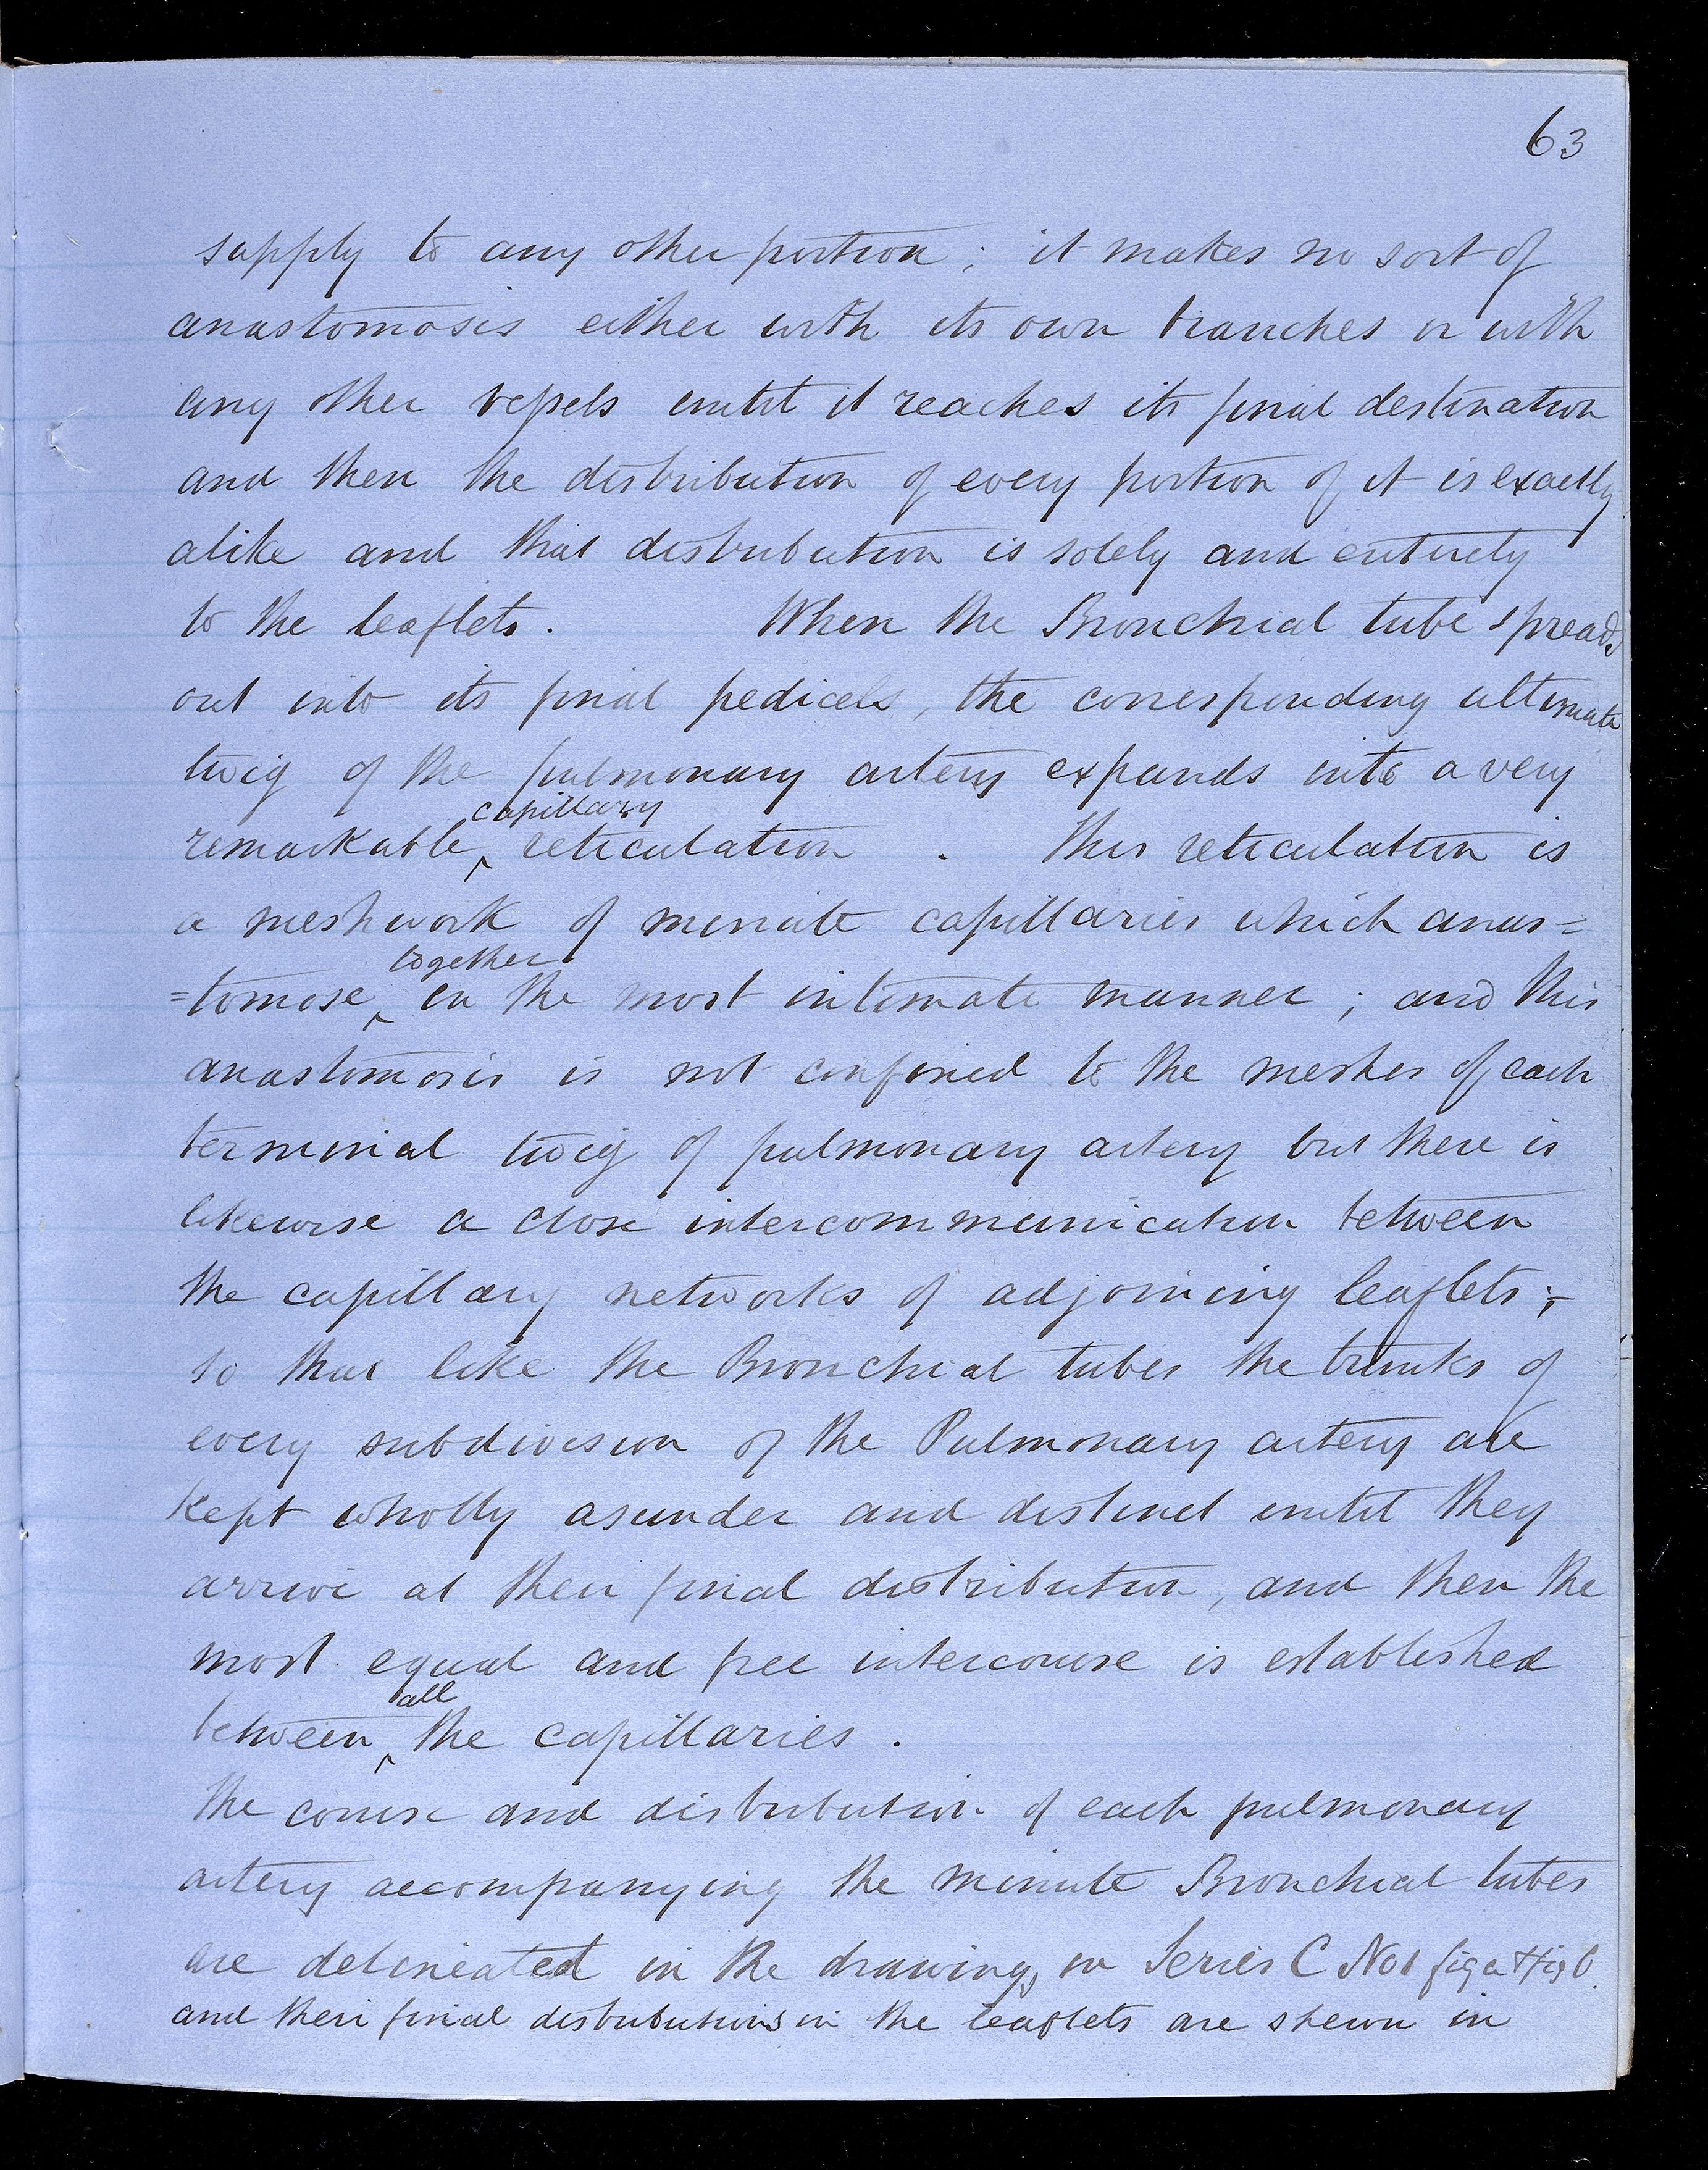 63
supply to any other portion ; it makes no sort of
anastomosis either with its own branches or with
any other vessels until it reaches its final destination
and then the distribution of every portion of it is exactly
alike and that distribution is solely and entirely
to the leaflets. When the Bronchial tube spreads
out into its final pedicels, the corresponding ultimate
twig of the pulmonary artery expands into a very
capillary
remarkable ‸ reticulation . This reticulation is
a meshwork of minute capillaries which anas=
together
=tomose ‸ in the most intimate manner ; and this
anastomosis is not confined to the meshes of each
terminal twig of pulmonary artery but there is
likewise a close intercommunication between
the capillary networks of adjoining leaflets ;-
so that like the Bronchial tubes the trunks of
every subdivision of the Pulmonary artery are
kept wholly asunder and distinct until they
arrive at their final distribution, and then the
most equal and free intercourse is established
all
between ‸ the capillaries .
The course and distribution of each pulmonary
artery accompanying the minute Bronchial tubes
are delineated in the drawings in Series C No 1 fig a + fig b.
and their final distributions in the leaflets are shewn in